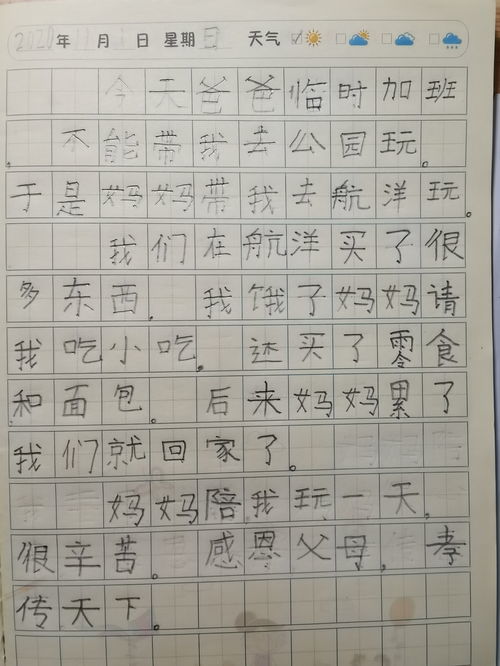 2020年11月1日 星期日 天气
今天爸爸临时加班
,不能带我去公园玩。
于是妈妈带我去航洋玩。
我们在航洋买了很
多东西,我饿了妈妈请
我吃小吃。还买了零食
和面包。后来妈妈累了
我们就回家了。
妈妈陪我玩一天,
很辛苦。感恩父母,孝
传天下。